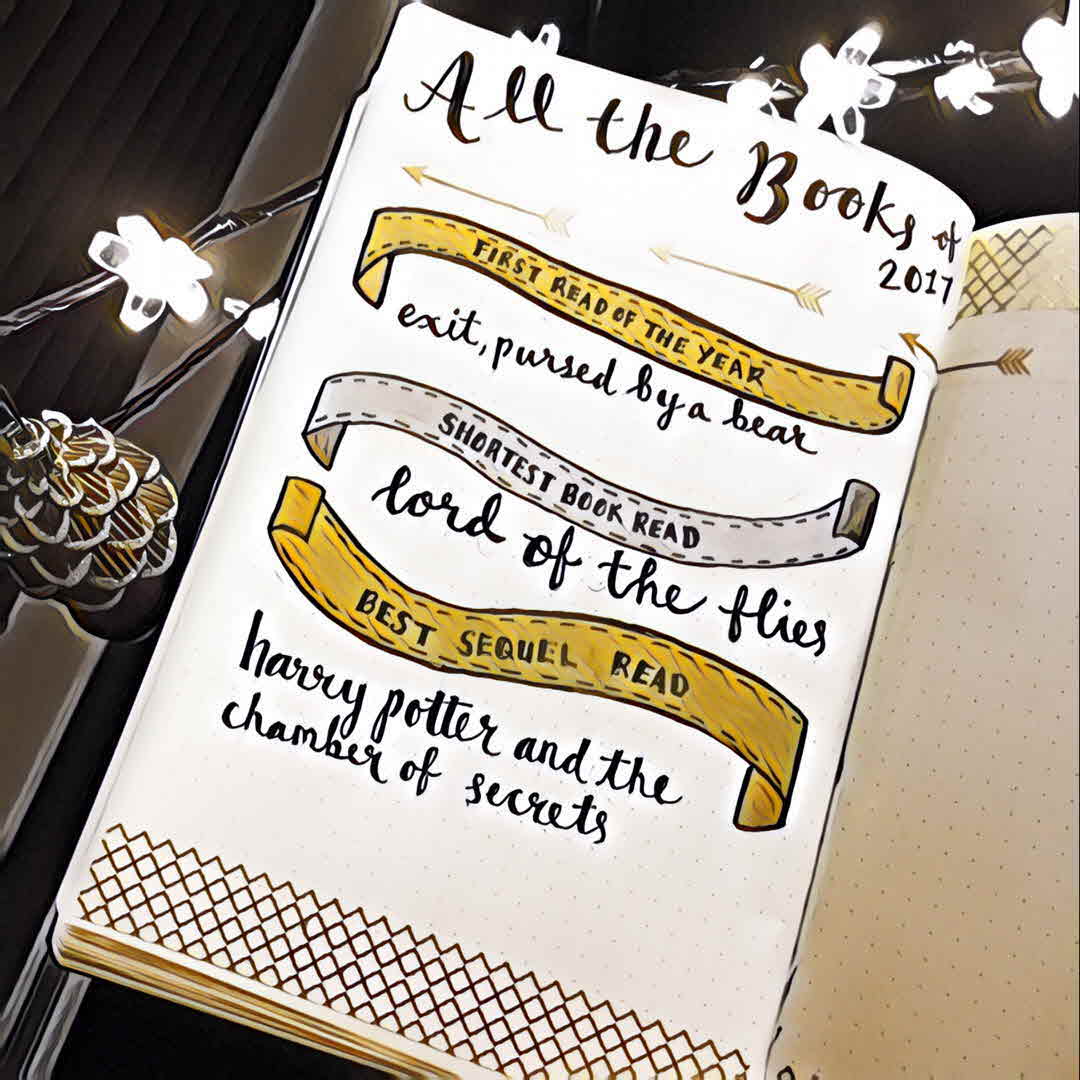 All the Books of
2017
FIRST READ OF THE YEAR
exit, pursed by a bear
SHORTEST BOOK READ
lord of the flies
BEST SEQUEL READ
harry potter and the
chamber of secrets